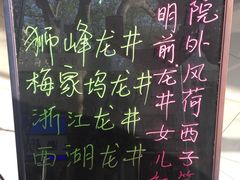 狮峰龙井
梅家坞龙井
浙江龙井
西湖龙井
明前龙井女儿
院外风荷西子